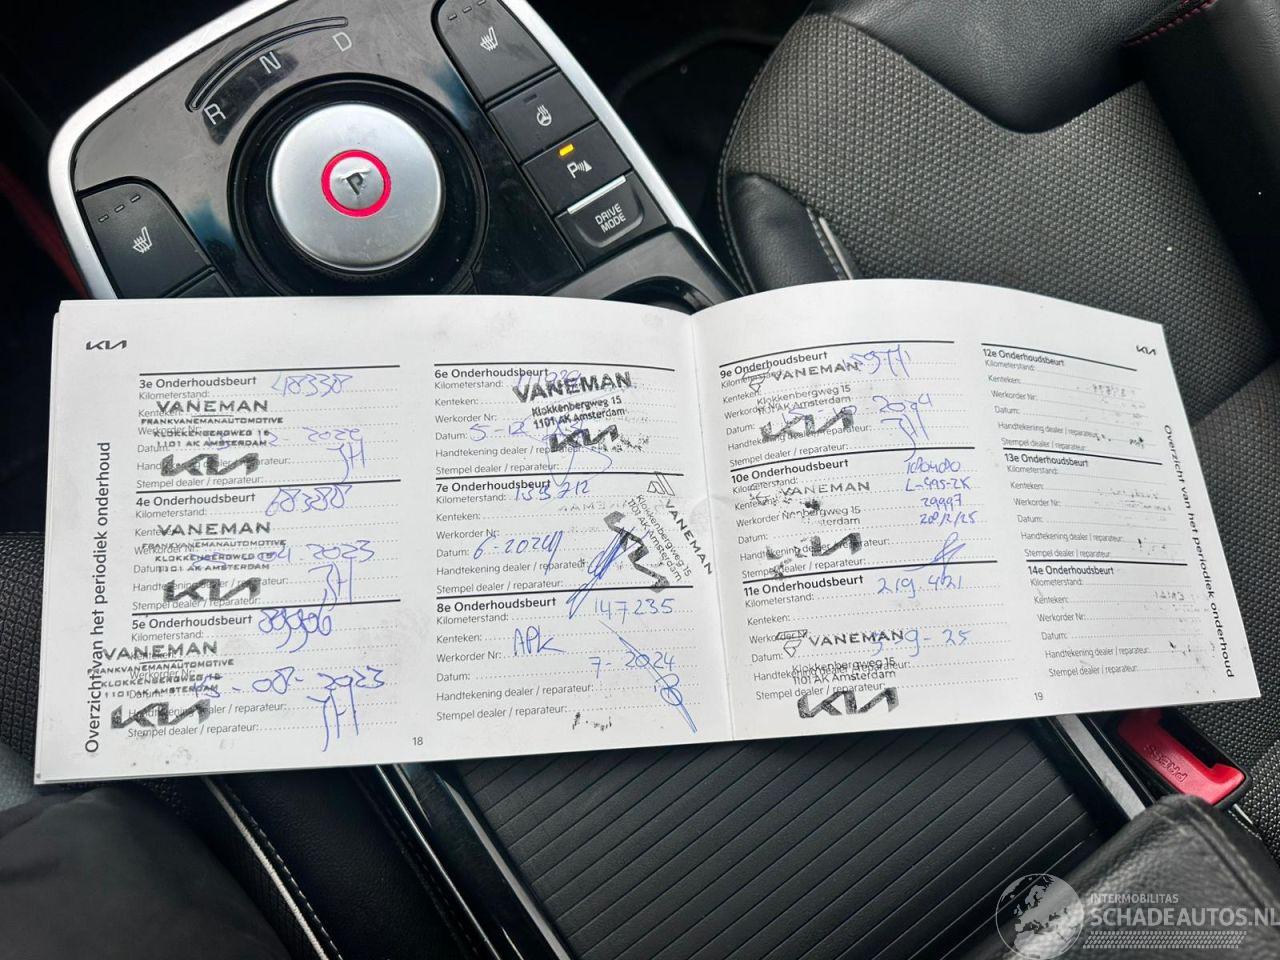 R N D
P
DRIVE
MODE
KIA
Overzicht van het periodiek onderhoud
3e Onderhoudsbeurt
Kilometerstand: 48338
Kenteken:
VANEMAN
FRANKVANEMANAUTOMOTIVE
KLOKKENBERGWEG 15
1101 AK AMSTERDAM
KIA
Stempel dealer / reparateur:
4e Onderhoudsbeurt
Kilometerstand: 68388
VANEMAN
FRANKVANEMANAUTOMOTIVE
KLOKKENBERGWEG 15
1101 AK AMSTERDAM
2023
Handtekening dealer / reparateur:
KIA
Stempel dealer / reparateur:
5e Onderhoudsbeurt
Kilometerstand:
VANEMAN
FRANKVANEMANAUTOMOTIVE
KLOKKENBERGWEG 15
1101 AK AMSTERDAM
Datum: 15-08-2023
Handtekening dealer / reparateur:
KIA
Stempel dealer / reparateur:
6e Onderhoudsbeurt
Kilometerstand:
VANEMAN
Kenteken:
Klokkenbergweg 15
1101 AK Amsterdam
Werkorder Nr:
Datum: 5-12
KIA
Handtekening dealer / reparateur:
Stempel dealer / reparateur:
7e Onderhoudsbeurt
Kilometerstand:
Kenteken:
Werkorder Nr:
Datum: 6-2024
Handtekening dealer / reparateur:
Stempel dealer / reparateur:
VANEMAN
Klokkenbergweg 15
1101 AK Amsterdam
KIA
8e Onderhoudsbeurt
Kilometerstand: 147235
Kenteken:
Werkorder Nr: APK
Datum: 7-2024
Handtekening dealer / reparateur:
Stempel dealer / reparateur:
18
KIA
9e Onderhoudsbeurt
Kilometerstand:
VANEMAN
Kenteken:
Klokkenbergweg 15
1101 AK Amsterdam
Werkorder
Datum: 2024
KIA
Handtekening dealer / reparateur:
Stempel dealer / reparateur:
10e Onderhoudsbeurt
Kilometerstand:
VANEMAN
Kenteken: L-995-ZK
Werkorder 29997
Datum:
KIA
Handtekening dealer / reparateur:
Stempel dealer / reparateur:
11e Onderhoudsbeurt
Kilometerstand: 219.421
Kenteken:
VANEMAN
Datum: 9-25
Klokkenbergweg 15
1101 AK Amsterdam
Handtekening dealer / reparateur:
Stempel dealer / reparateur:
KIA
12e Onderhoudsbeurt
Kilometerstand:
Kenteken:
Werkorder Nr:
Datum:
Handtekening dealer / reparateur:
Stempel dealer / reparateur:
13e Onderhoudsbeurt
Kilometerstand:
Kenteken:
Werkorder Nr:
Datum:
Handtekening dealer / reparateur:
Stempel dealer / reparateur:
14e Onderhoudsbeurt
Kilometerstand:
Kenteken:
Werkorder Nr:
Datum:
Handtekening dealer / reparateur:
Stempel dealer / reparateur:
19
Overzicht van het periodiek onderhoud
PRESS
INTERMOBILITAS
SCHADEAUTOS.NL